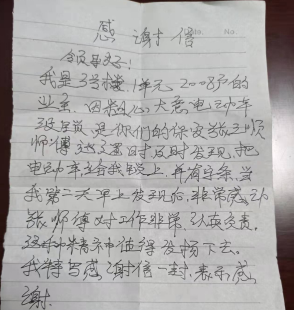 感谢信
No.
领导好:
我是3号楼,1单元2008户的
业主 因粗心大意电动车
没锁 是你们的保安张正顺
师傅 及时发现,把
电动车主给我锁上 并有字条 当
我第二天早上发现后,非常感动
张师傅对工作非常认真负责
这种精神值得发扬下去。
我特写感谢信一封,表示感
谢.